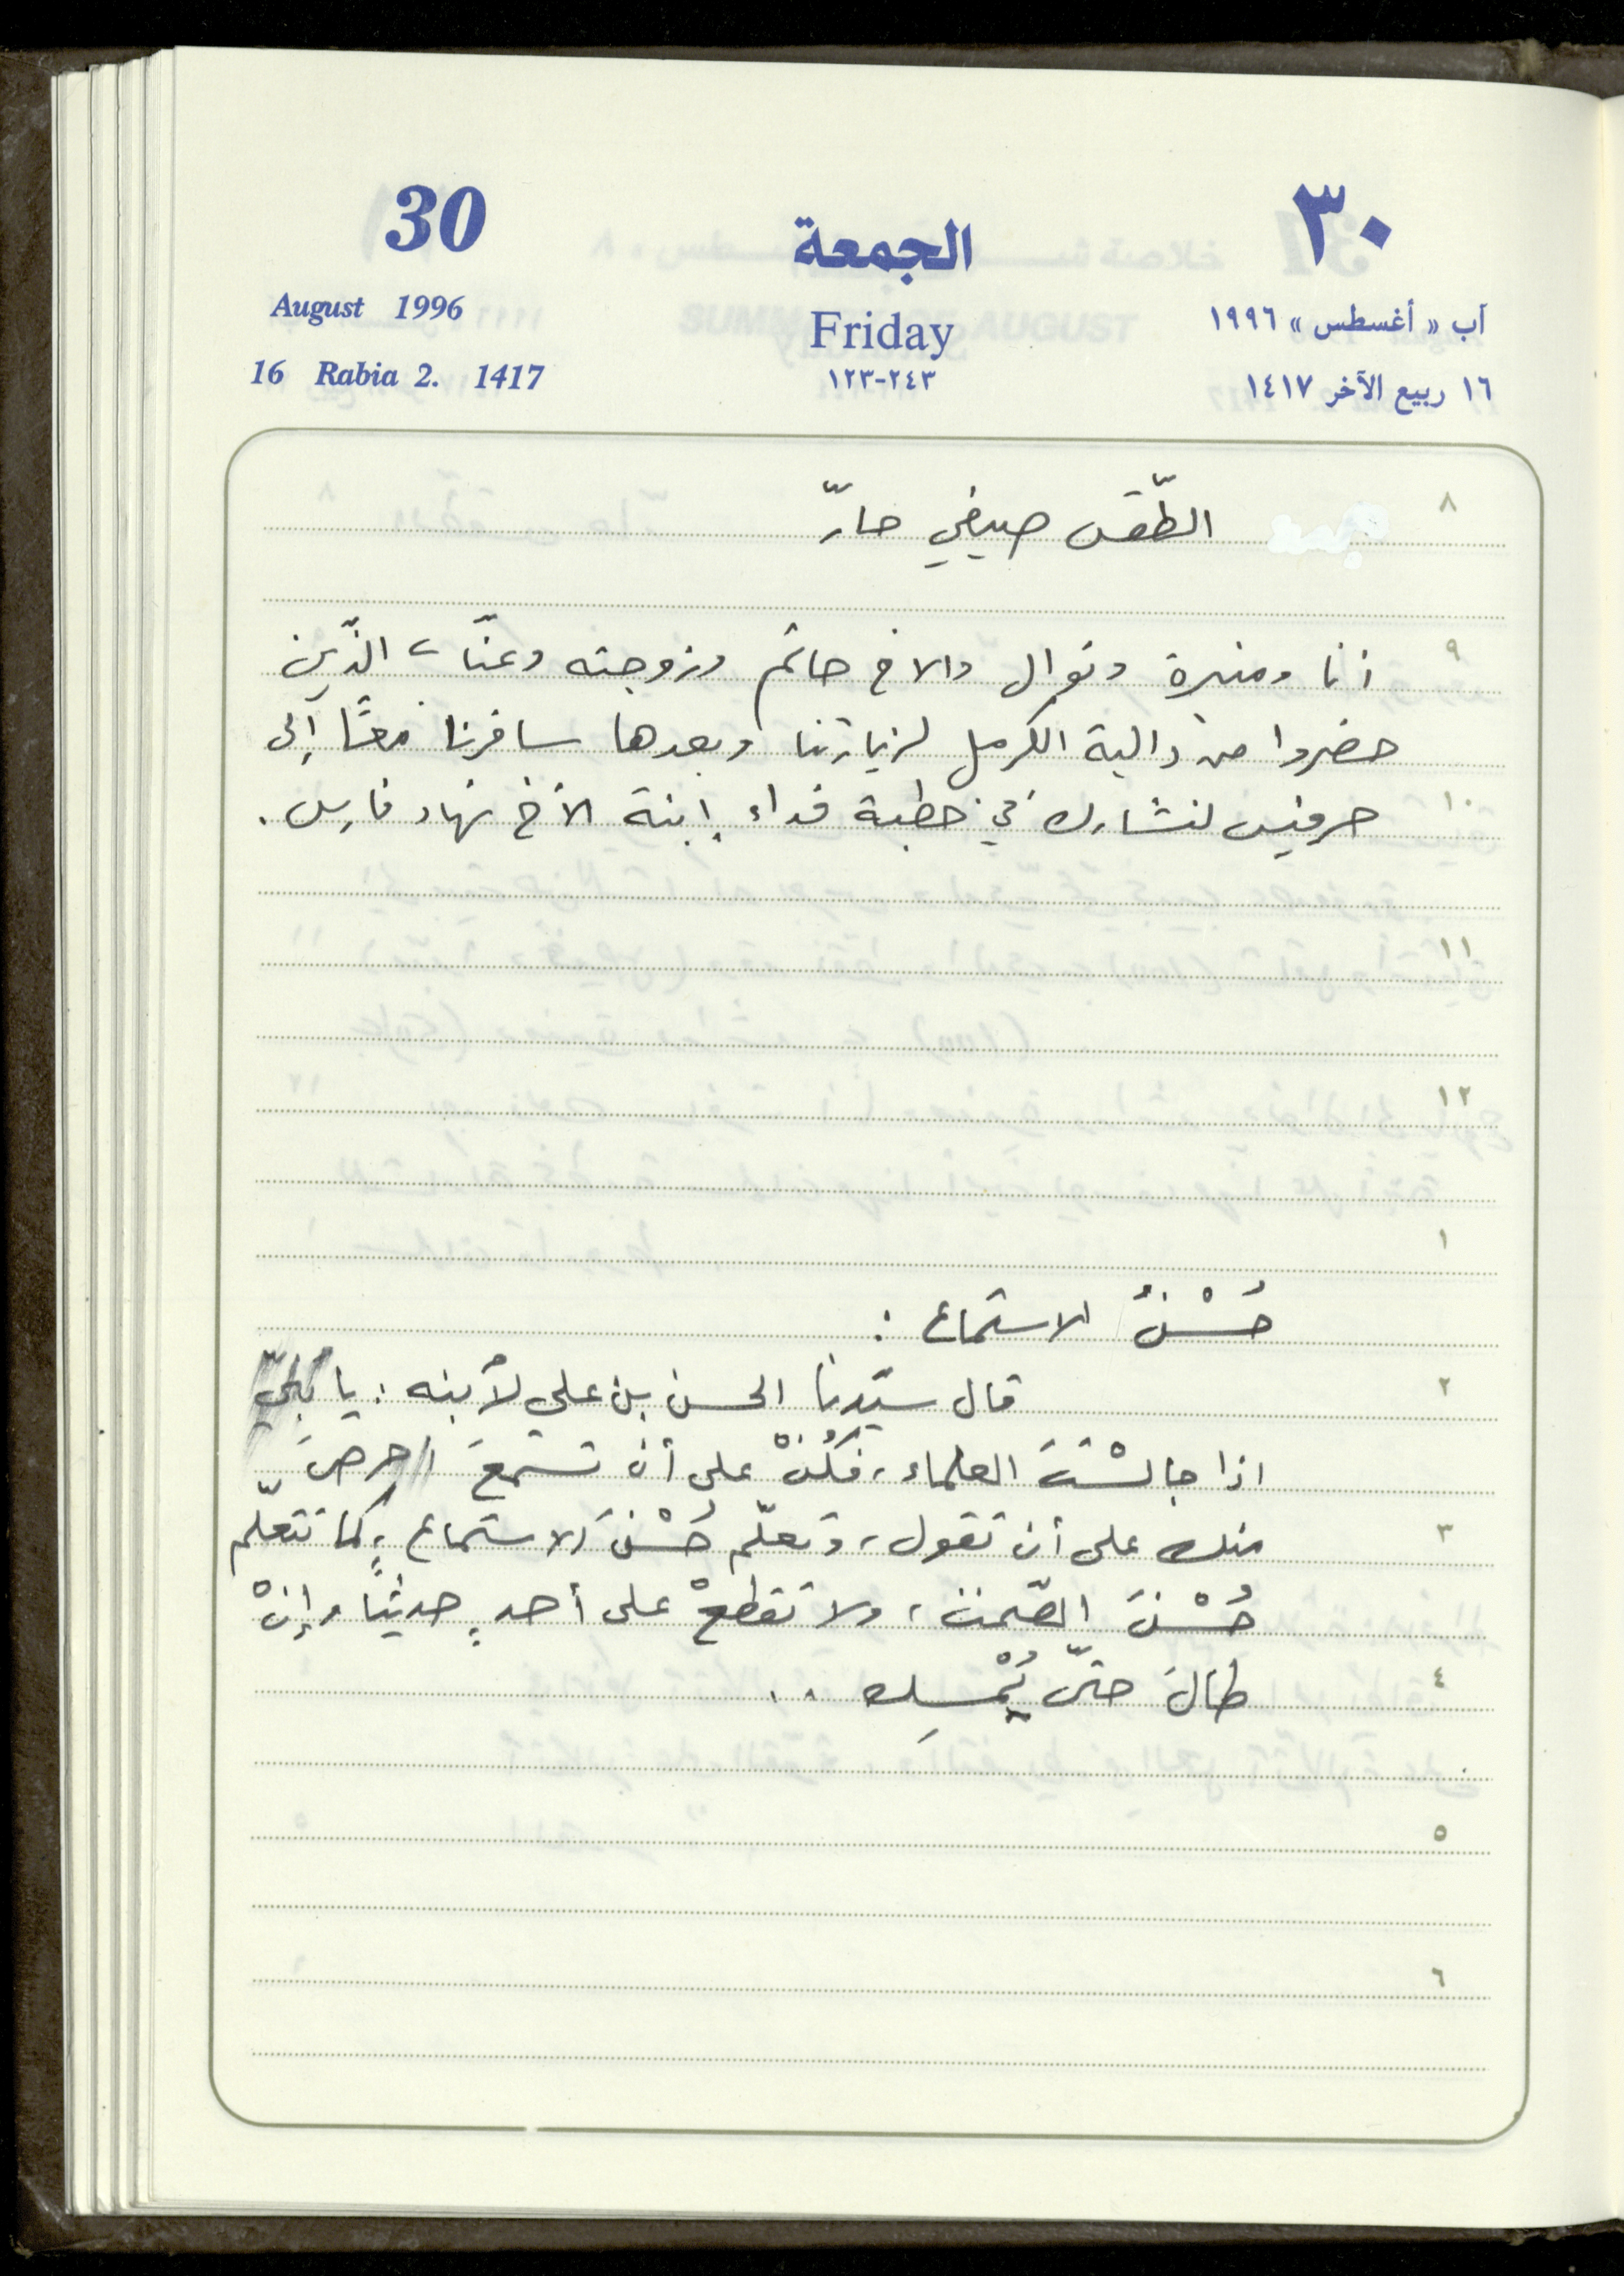 30
الجمعة
٣٠
August 1996
Friday
آب « أغسطس » ١٩٩٦
16 Rabia 2. 1417
٢٤٣-١٢٣
١٦ ربيع الآخر ١٤١٧
٨
الطّقس صيفي حارّ
٩
أنا ومنيرة ونوال والاخ حاتم وزوجته وعنّاب الذّين
حضروا من دالية الكرمل لزيارتنا وبعدها سافرنا معًا إلى
١٠
حرفيش لنشارك في خطبة فداء إبنة الأخ نهاد فارس.
١١
١٢
١
حُسْنُ الاستماع :
٢
قال سيّدنا الحسن بن علي لأبنه : يا بنيّ
اذا جالسْتَ العلماء، فكُنْ على أن تستمعَ احرصَ
٣
منك على أن تقول، وتعلّم حُسْنَ الاستماع، كما تتعلّم
حُسْنَ الصّمت، ولا تقطعْ على أحدٍ حديثًا وإنْ
٤
طالَ حتّى يُمْسِك ..
٥
٦